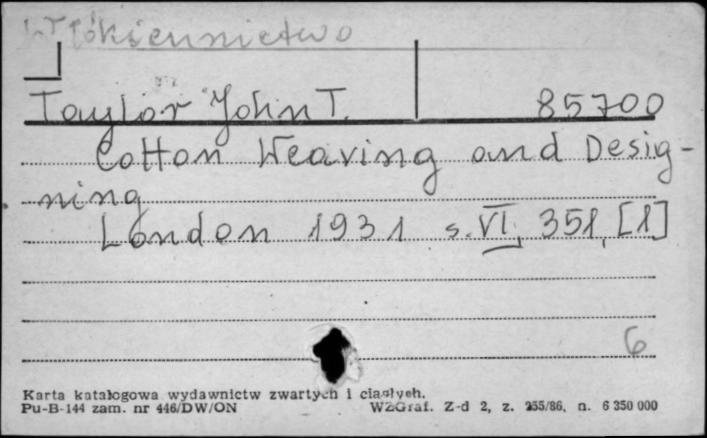 Włókiennictwo
Taylor John T. 85700
Cotton Weaving and Desig-
ning
London 1931 s. VI, 351, [1]
6
Karta katalogowa wydawnictw zwartych i ciągłych.
Pu-B-144 zam. nr 446/DW/ON WZGraf. Z-d 2, z. 255/86, n. 6 350 000